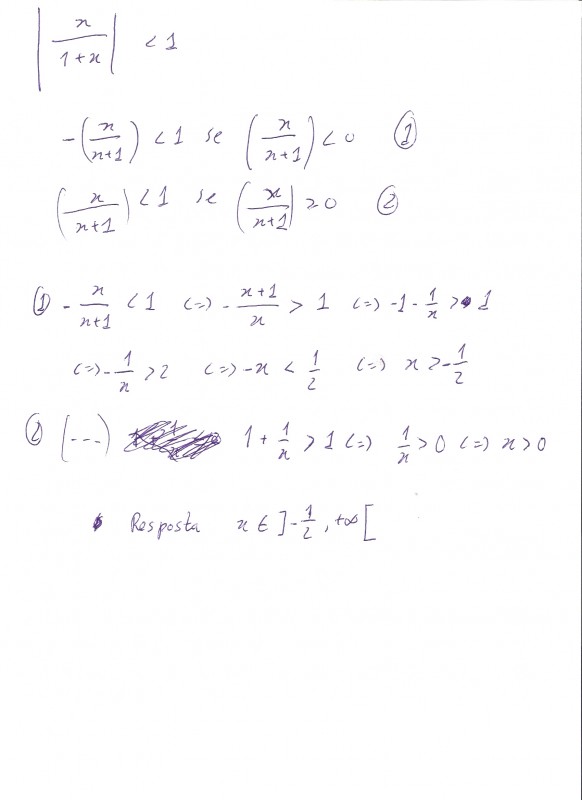 |x/(1+x)| < 1
-(x/(x+1)) < 1 se (x/(x+1)) < 0 ①
(x/(x+1)) < 1 se (x/(x+1)) ≥ 0 ②
① - x/(x+1) < 1 (=) - (x+1)/x > 1 (=) -1 - 1/x > 1
(=) - 1/x > 2 (=) -x < 1/2 (=) x > -1/2
② (---) 1 + 1/x > 1 (=) 1/x > 0 (=) x > 0
Resposta x ∈ ]-1/2, +∞[